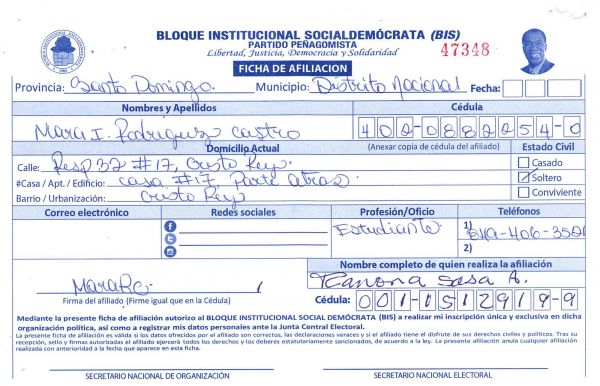 BLOQUE INSTITUCIONAL SOCIALDEMÓCRATA (BIS)
PARTIDO PEÑAGOMISTA
Libertad, Justicia, Democracia y Solidaridad
47348
FICHA DE AFILIACION
Provincia: Santo Domingo. Municipio: Distrito Nacional Fecha:
Nombres y Apellidos Cédula
Mara I. Rodriguez Castro 402-0882254-0
Domicilio Actual (Anexar copia de cédula del afiliado) Estado Civil
Calle: Resp 32 #17, Cristo Rey. Casado
#Casa / Apt. / Edificio: casa #17, Parte atras Soltero
Barrio / Urbanización: Cristo Rey Conviviente
Correo electrónico Redes sociales Profesión/Oficio Teléfonos
Estudiante 1) 849-406-3521
2)
Nombre completo de quien realiza la afiliación
MaraRC. Ramona Sosa A.
Firma del afiliado (Firme igual que en la Cédula) Cédula: 001-1512919-9
Mediante la presente ficha de afiliación autorizo al BLOQUE INSTITUCIONAL SOCIAL DEMÓCRATA (BIS) a realizar mi inscripción única y exclusiva en dicha
organización política, así como a registrar mis datos personales ante la Junta Central Electoral.
La presente ficha de afiliación es válida si los datos ofrecidos por el afiliado son correctos, las declaraciones veraces y si el afiliado tiene el disfrute de sus derechos civiles y políticos. Tras su
recepción, sello y firmas autorizadas el afiliado ejercerá todos los derechos y los deberes estatutariamente sancionados, de acuerdo a la ley. La presente afiliación anula cualquier afiliación
realizada con anterioridad a la fecha que aparece en esta ficha.
SECRETARIO NACIONAL DE ORGANIZACIÓN SECRETARIO NACIONAL ELECTORAL